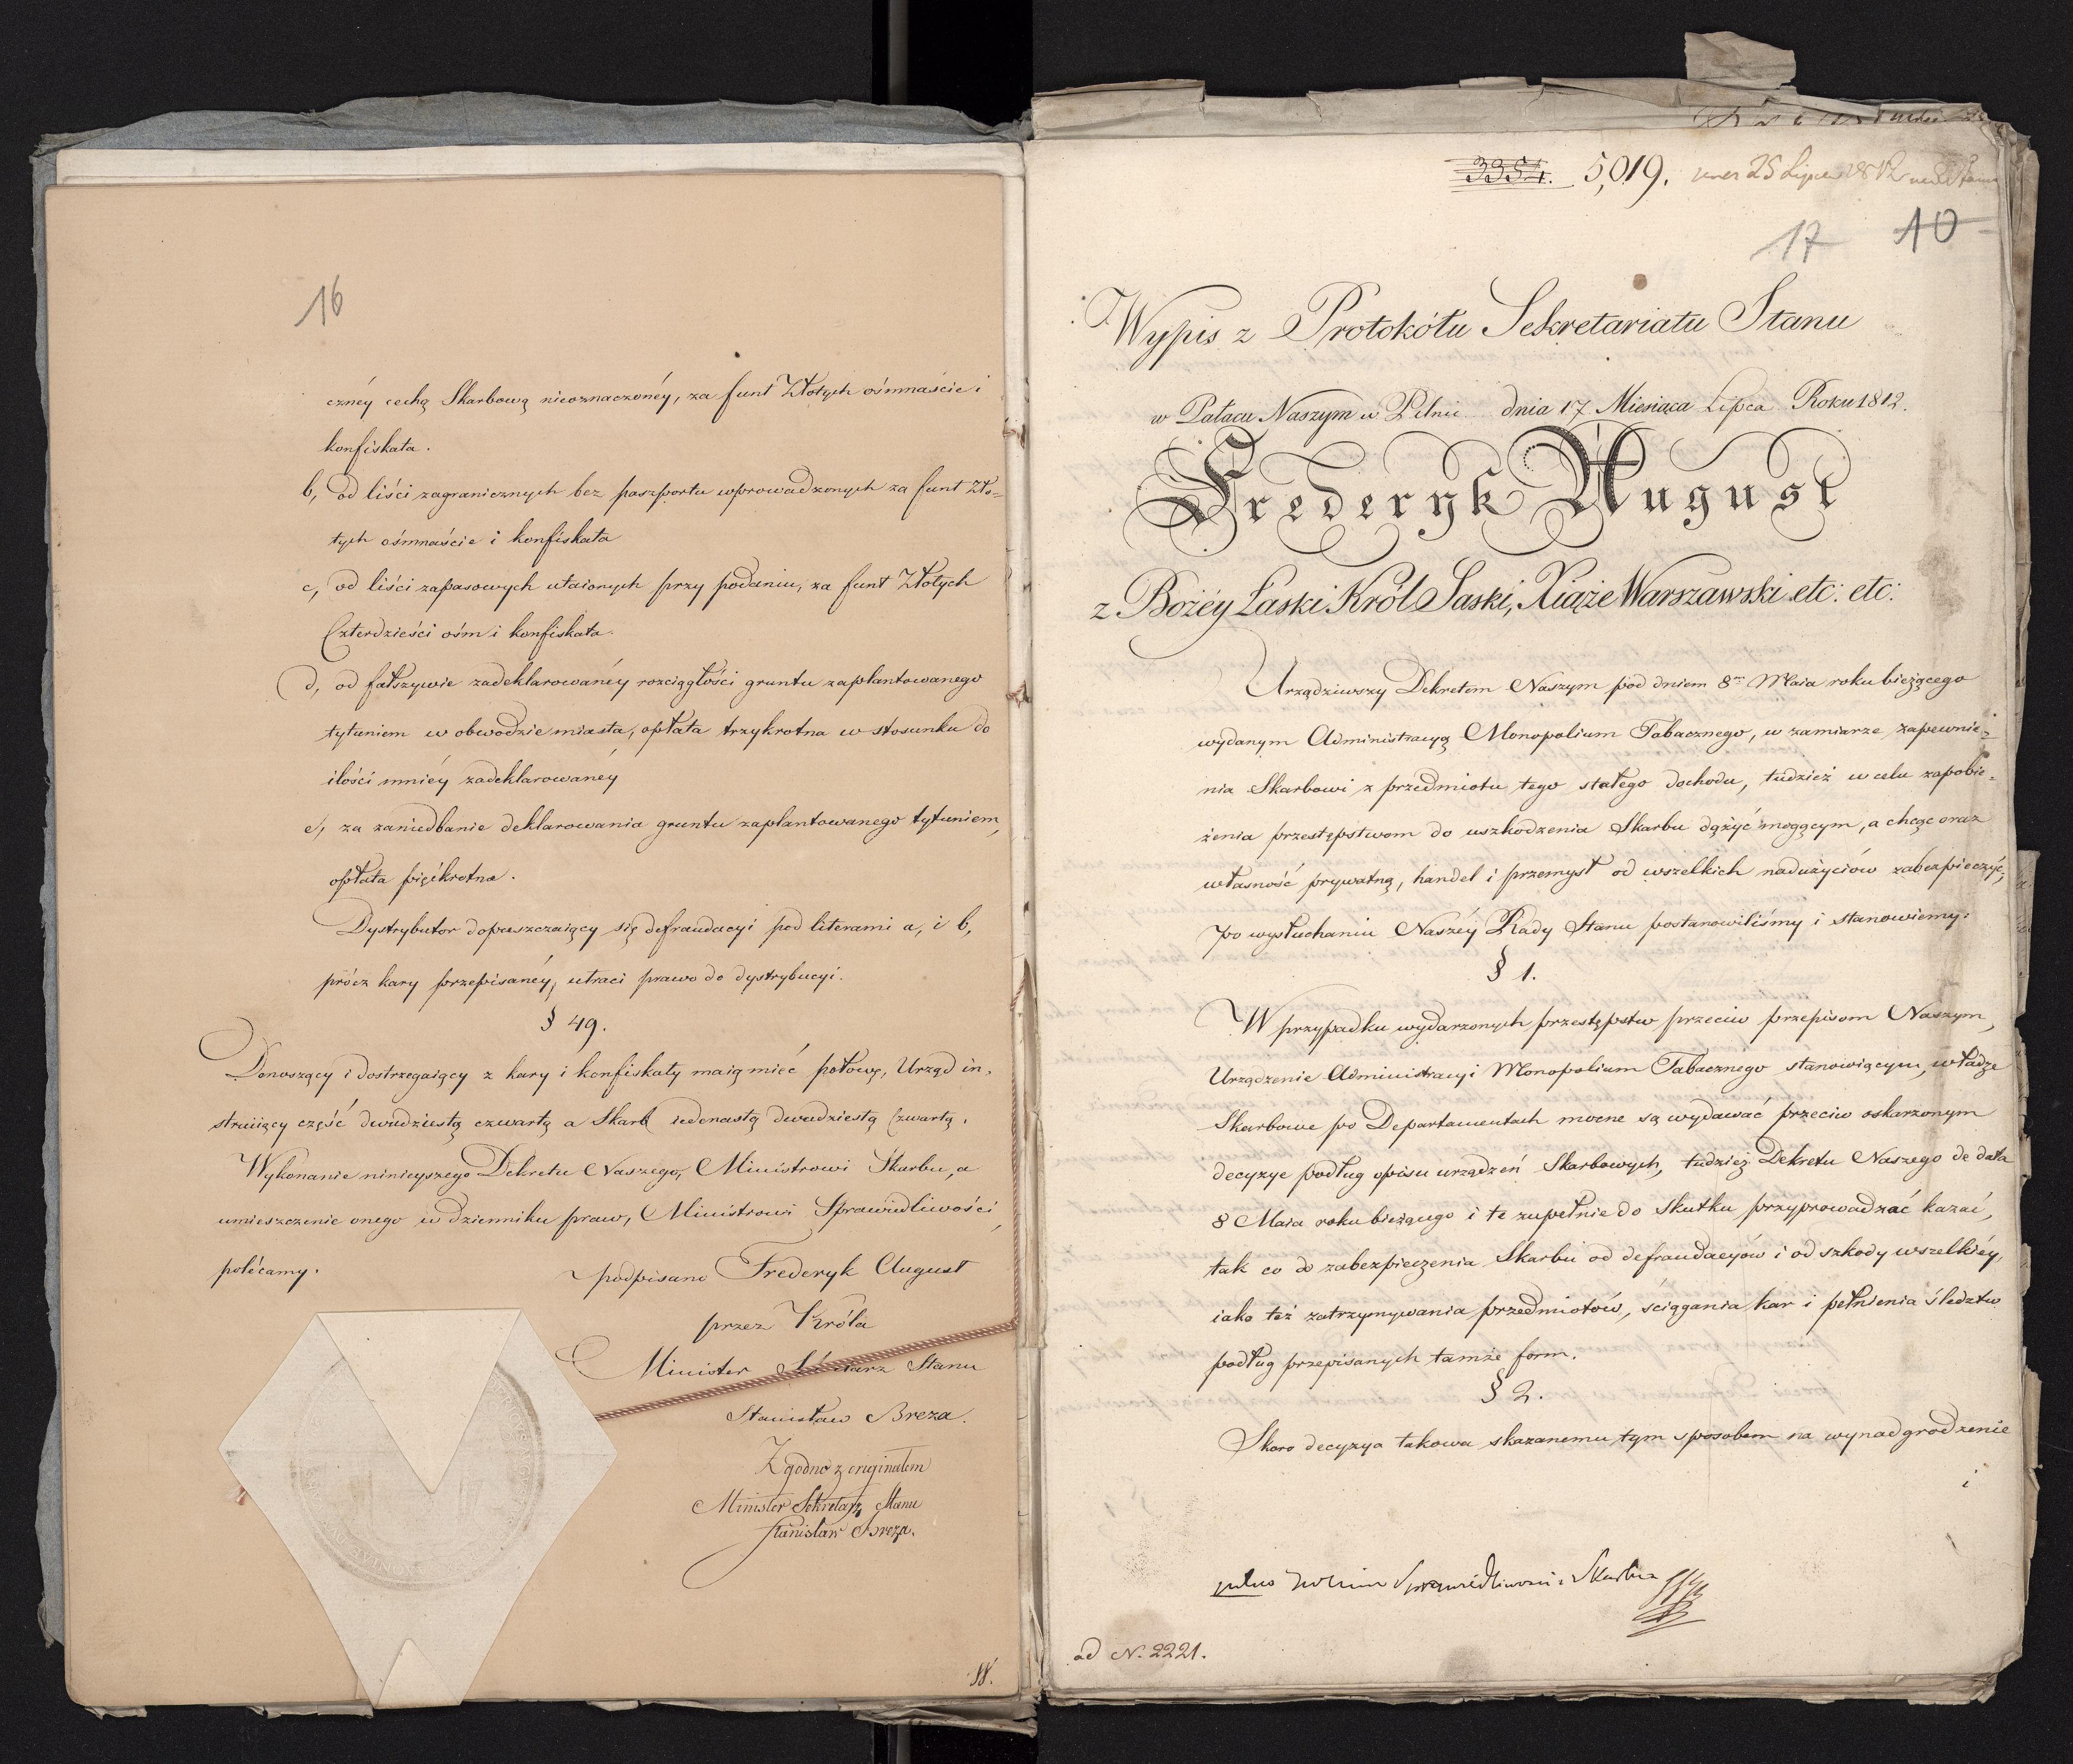 16
cznéy cechą Skarbową nieoznaczonéy, za funt Złotych ośmnaście i
konfiskata.
b, od liści zagranicznych bez paszportu wprowadzonych za funt Zło=
tych ośmnaście i konfiskata
c, od liści zapasowych utaionych przy podaniu, za funt Złotych
Czterdzieści ośm i konfiskata.
d, od fałszywie zadeklarowanéy rozciągłości gruntu zaplantowanego
tytuniem w obwodzie miasta, opłata trzykrotna w stosunku do
ilości mniéy zadeklarowanéy
e, za zaniedbanie deklarowania gruntu zaplantowanego tytuniem,
opłata pięćkrotna.
Dystrybutor dopuszczaiący się defraudacyi pod literami a, i b,
prócz kary przepisanéy, utraci prawo do dystrybucyi.
§ 49.
Donoszący i dostrzegaiący z kary i konfiskaty maią mieć połowę, Urząd in=
struiiący część dwudziestą czwartą a Skarb iedenastą dwudziestą czwartą.
Wykonanie ninieyszego Dekretu Naszego, Ministrowi Skarbu, a
umieszczenie onego w dzienniku praw, Ministrowi Sprawiedliwości,
polécamy.
podpisano Frederyk August
przez Króla
Minister Sekretarz Stanu
Stanisław Breza.
Zgodno z originałem
Minister Sekretarz Stanu
Stanisław Breza.
3354. 5,019. 25 Lipca 1812
17 10
Wypis z Protokółu Sekretariatu Stanu
w Pałacu Naszym w Pilnic dnia 17 Miesiąca Lipca Roku 1812.
Frederyk August
z Bożéy Łaski Król Saski, Xiąże Warszawski etc: etc:
Urządziwszy Dekretem Naszym pod dniem 8m Maia roku bieżącego
wydanym Administracyą Monopolium Tabacznego, w zamiarze zapewnie=
nia Skarbowi z przedmiotu tego stałego dochodu, tudzież w celu zapobie=
żenia przestępstwom do uszkodzenia Skarbu dążyć mogącym, a chcąc oraz
własność prywatną, handel i przemysł od wszelkich nadużyciów zabezpieczyć,
po wysłuchaniu Naszéy Rady Stanu postanowiliśmy i stanowiemy:
§ 1.
W przypadku wydarzonych przestępstw przeciw przepisom Naszym,
Urządzenie Administracyi Monopolium Tabacznego stanowiącym, władze
Skarbowe po Departamentach mocne są wydawać przeciw oskarzonym
decyzye podług opisu urządzeń Skarbowych, tudzież Dekretu Naszego de data
8 Maia roku bieżącego i te zupełnie do skutku przyprowadzać kazać,
tak co do zabezpieczenia Skarbu od defraudacyów i od szkody wszelkiéy,
iako też zatrzymywania przedmiotów, ściągania kar i pełnienia śledztw
podług przepisanych tamże form.
§ 2.
Skoro decyzya takowa skazanemu tym sposobem na wynadgrodzenie
i
Sprawiedliwości i Skarbu
ad N. 2221.